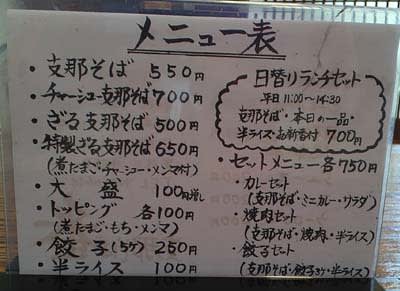 メニュー表
・支那そば 550円
・チャーシュー支那そば 700円
・ざる支那そば 500円
・特製ざる支那そば 650円
(煮たまご・チャーシュー・メンマ付)
・大盛 100円増し
・トッピング 各100円
(煮たまご・もち・メンマ)
・餃子(5ケ) 250円
・半ライス 100円
日替りランチセット
平日 11:00〜14:30
支那そば・本日の一品・
半ライス・お新香付 700円
・セットメニュー各750円
・カレーセット
(支那そば・ミニカレー・サラダ)
・焼肉セット
(支那そば・焼肉・半ライス)
・餃子セット
(支那そば・餃子3ケ・半ライス)